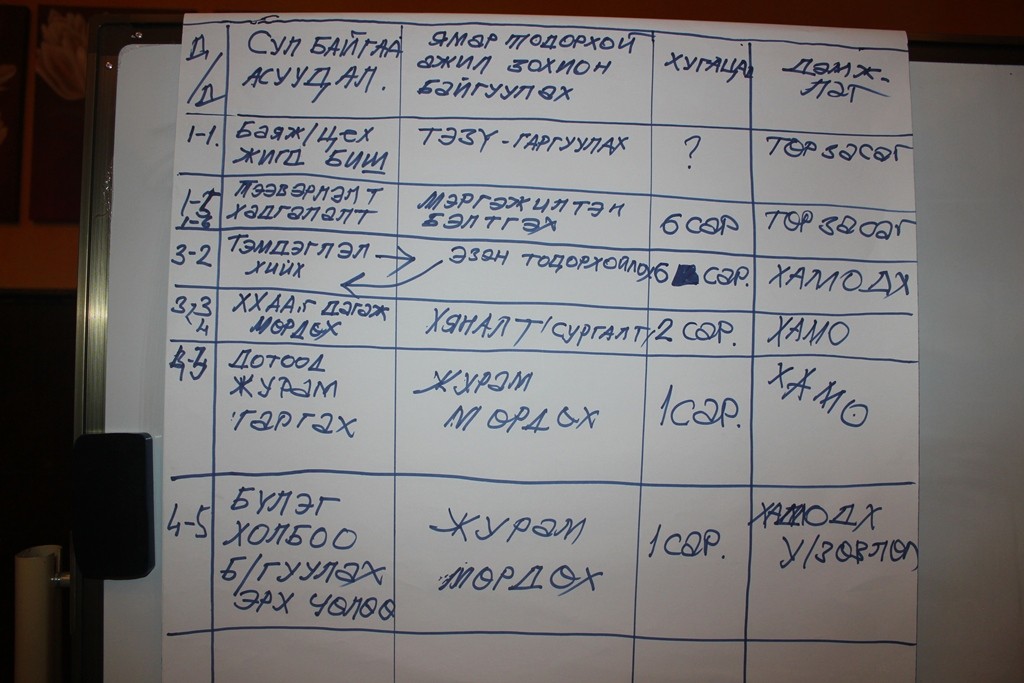 Д/Д
СУЛ БАЙГАА
АСУУДАЛ.
ЯМАР ТОДОРХОЙ
АЖИЛ ЗОХИОН
БАЙГУУЛАХ
ХУГАЦАА
ДЭМЖ-
ЛЭГ
1-1.
БАЯЖ/ЦЕХ
ЖИГД БИШ
ТЭЗҮ-ГАРГУУЛАХ
?
ТӨР ЗАСАГ
1-5
1-6
ТЭЭВЭРЛЭЛТ
ХАДГАЛАЛТ
МЭРГЭЖИЛТЭН
БЭЛТГЭХ
6 САР
ТӨР ЗАСАГ
3-2
ТЭМДЭГЛЭЛ
ХИЙХ
ЭЗЭН ТОДОРХОЙЛОХ
6 САР.
ХАМО ДХ
3,3
4
ХХАА,Г ДАГАЖ
МӨРДӨХ
ХЯНАЛТ/СУРГАЛТ/
2 САР.
ХАМО
ДОТООД
ЖУРАМ
ГАРГАХ
ЖУРАМ
МӨРДӨХ
1 САР.
ХАМО
4-5
БҮЛЭГ
ХОЛБОО
Б/ГУУЛАХ
ЭРХ ЧӨЛӨӨ
ЖУРАМ
МӨРДӨХ
1 САР.
ХАМО ДХ
У/ЗӨВЛӨЛ